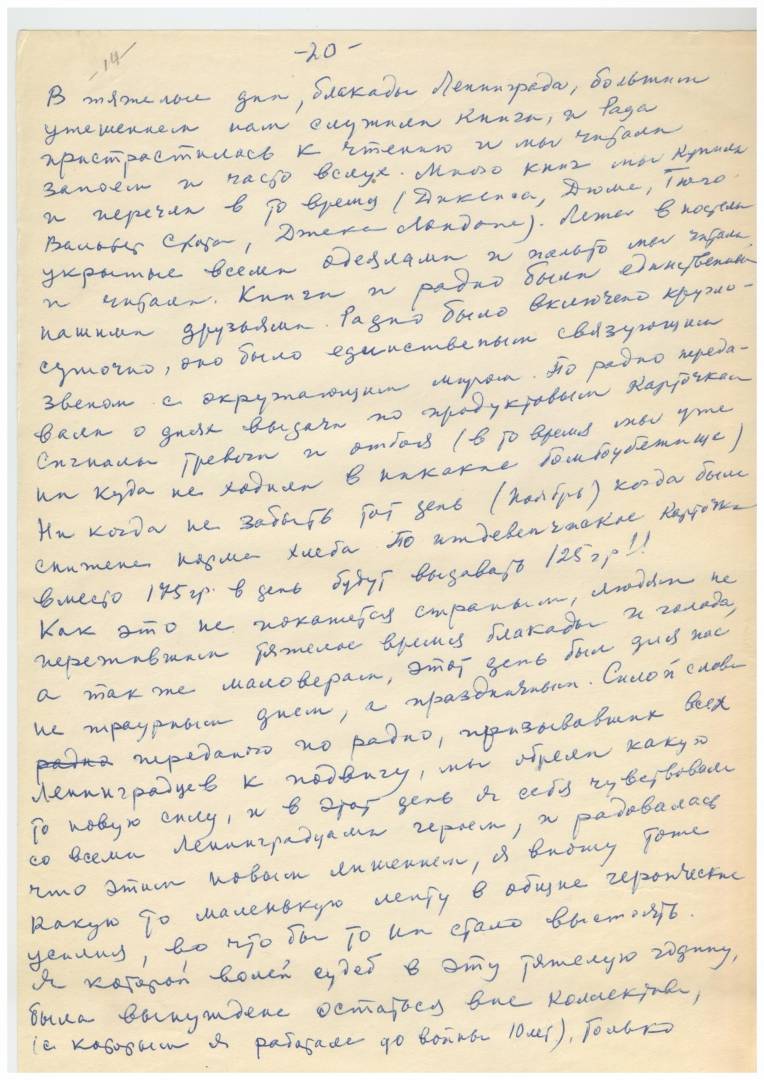 -14-
-20-
В тяжелые дни, блакады Ленинграда, большим
утешением нам служили книги, и Рада
пристрастилась к чтению и мы читали
запоем и часто вслух. Много книг мы купили
и перечли в то время (Дикенса, Дюма, Гюго
Вальтер Скота, Джека Лондона). Лежа в постели
укрытые всеми одеялами и пальто мы читали
и читали. Книги и радио были единственными
нашими друзьями. Радио было включено кругло-
суточно, оно было единственым связующим
звеном с окружающим миром. По радио переда-
вали о днях выдачи по продуктовым карточкам
сигналы тревоги и отбоя (в то время мы уже
ни куда не ходили в никакие бомбоубежища)
Ни когда не забыть тот день (ноябрь) когда была
снижена норма хлеба по иждевенчиские карточки
вместо 175 гр. в день будут выдавать 125 гр!!
Как это не покажется страным, людям не
пережившим тяжелое время блакады и голода,
а так же маловерам, этот день был для нас
не траурным днем, а праздничным. Силой слова
радио переданого по радио, призывавших всех
Ленинградцев к подвигу, мы обрели какую
то новую силу, и в этот день я себя чувствовала
со всеми Ленинградцами героем, и радовалась
что этим новым лишением, я вношу тоже
какую то маленькую лепту в общие героические
усилия, во что бы то ни стало выстоять.
Я которой волей судеб в эту тяжелую годину,
была вынуждена остаться вне коллектива,
(с которым я работала до войны 10 лет), только